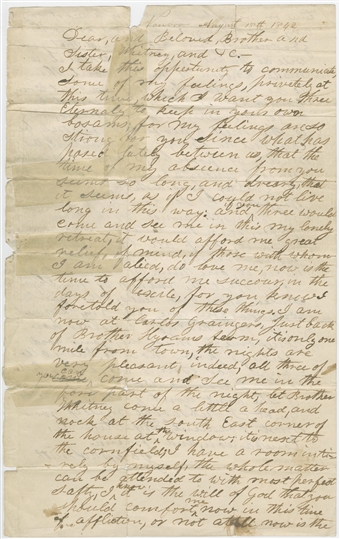 Nauvoo August 18th 1842
Dear, and Beloved, Brother and
Sister, Whitney, and &c.—
I take this oppertunity to communi[cate]
some of my feelings, privetely at
this time, which I want you three
Eternaly to keep in your own
bosams; for my feelings are so
strong for you since what has
pased lately between us, that the
time of my abscence from you
seems so long, and dreary, that
it seems, as if I could not live
long in this way: and if you three would
come and see me in this my lonely
retreat, it would afford me great
relief, of mind, if those with whom
I am alied, do love me, now is the
time to afford me succour, in the
days of exile, for you know I
foretold you of these things. I am
now at Carlos Graingers, Just back
of Brother Hyrams farm, it is only one
mile from town, the nights are
very pleasant, indeed, all three of
you can come and See me in the
fore part of the night, let Brother
Whitney come a little a head, and
nock at the south East corner of
the house at the window; it is next to
the cornfield; I have a room inti-
rely by myself, the whole matter
can be attended to with most perfect
saft[e]y, I know it is the will of God that you
should comfort me now in this time
of affliction, or not at all now is the